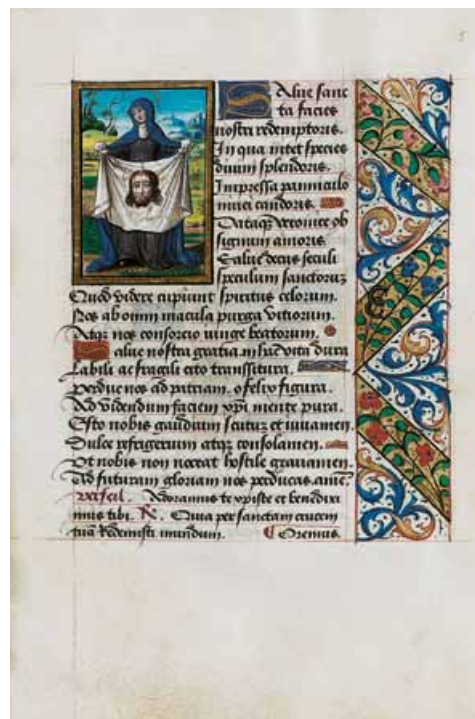 5
Salue sanc
ta facies
nostri redemptoris.
In qua nitet species
diuini splendoris.
Impressa panniculo
niuei candoris.
Dataq̄ veronice ob
signum amoris.
Salue decus seculi
speculum sanctoruꝫ
Quod videre cupiunt spiritus celorum.
Nos ab omni macula purga vitiorum.
Atq̄ nos consorcio iunge beatorum.
Salue nostra gratia in hac vita dura
Labili ac fragili cito transsitura.
Perduc nos ad patriam o felix figura.
Ad videndum faciem xpi mente pura.
Esto nobis gaudium scutuꝫ et iuuamen.
Dulce refrigerium atq̄ consolamen.
Vt nobis non noceat hostile grauamen.
Ad futuram gloriam nos perducas amē.
Verseil. Adoramus te xpiste et benedixi
mus tibi. R̸. Quia per sanctam crucem
tuā Redemisti mundum. Oremus.